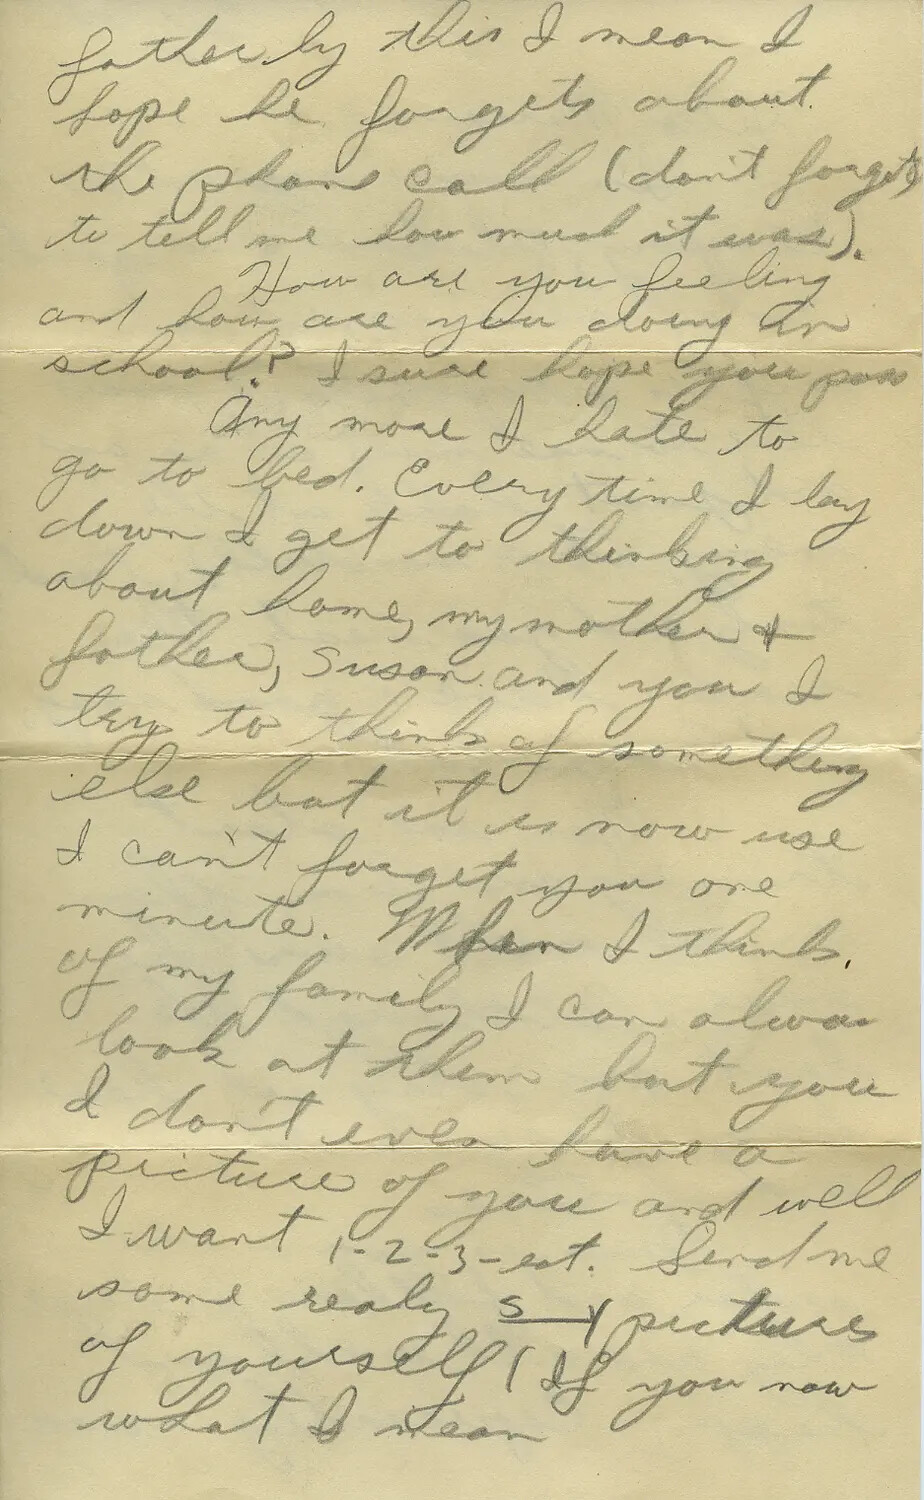 father by this I mean I
hope he forgets about
the phone call (don't forget
to tell me how much it was).
How are you feeling
and how are you doing in
school? I sure hope you pass
Any more I hate to
go to bed. Every time I lay
down I get to thinking
about home, my mother +
father, Susan and you I
try to think of something
else but it is now use
I can't forget you one
minute. When I think
of my family I can alwa
look at them but you
I don't even have a
picture of you and well
I want 1-2-3-ect. Send me
some realy s—y pictures
of yourself (If you now
what I mean